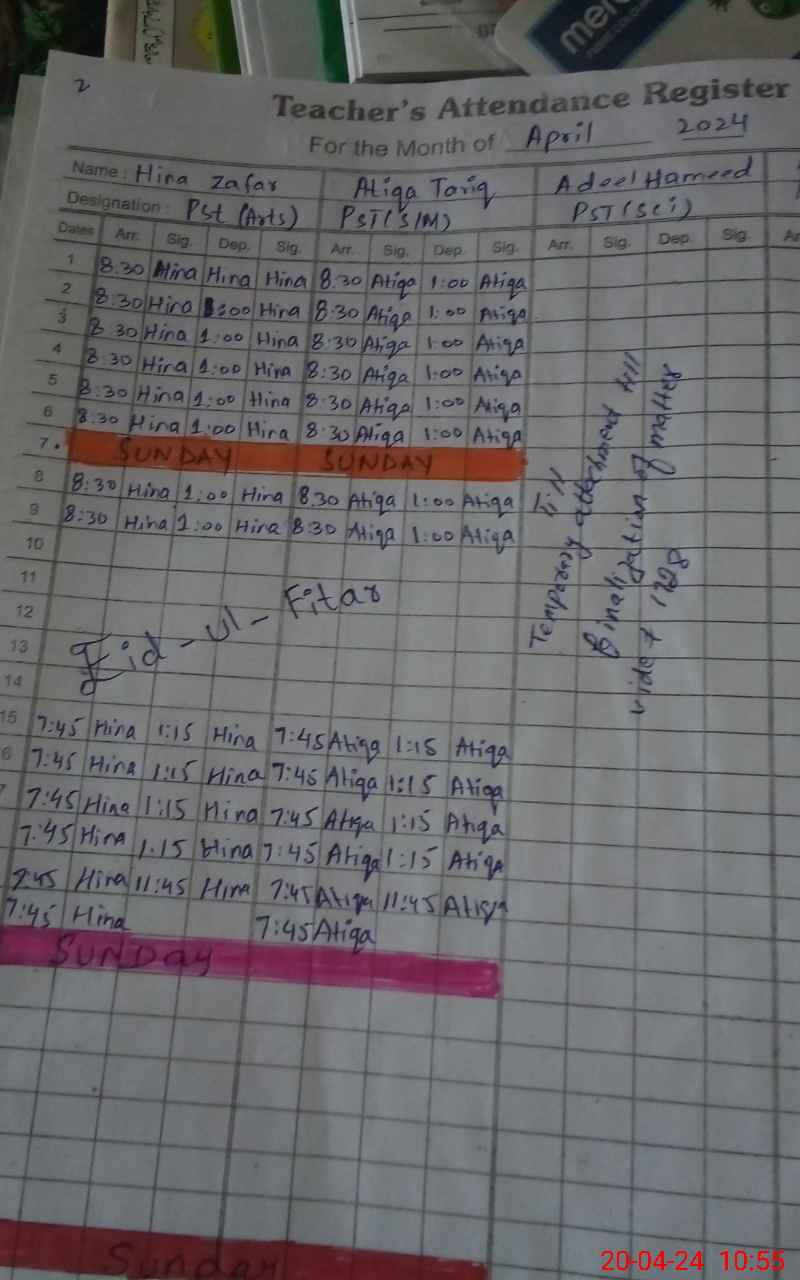 2
Teacher's Attendance Register
For the Month of April 2024
Name: Hina Zafar Atiqa Tariq Adeel Hameed
Designation: Pst (Arts) PST(S/M) PST(Sci)
Dates Arr. Sig. Dep. Sig. Arr. Sig. Dep. Sig. Arr. Sig. Dep. Sig.
1 8.30 Hina Hina Hina 8.30 Atiqa 1:00 Atiqa
2 8:30 Hina 1:00 Hina 8:30 Atiqa 1:00 Atiqa
3 8:30 Hina 1:00 Hina 8:30 Atiqa 1:00 Atiqa
4 8:30 Hina 1:00 Hina 8:30 Atiqa 1:00 Atiqa
5 8:30 Hina 1:00 Hina 8:30 Atiqa 1:00 Atiqa
6 8:30 Hina 1:00 Hina 8:30 Atiqa 1:00 Atiqa
7. SUNDAY SUNDAY
8 8:30 Hina 1:00 Hina 8.30 Atiqa 1:00 Atiqa
9 8:30 Hina 1:00 Hina 8:30 Atiqa 1:00 Atiqa
10
11
12
13
14
Eid-ul-Fitar
15 7:45 Hina 1:15 Hina 7:45 Atiqa 1:15 Atiqa
6 7:45 Hina 1:15 Hina 7:45 Atiqa 1:15 Atiqa
7 7:45 Hina 1:15 Hina 7:45 Atiqa 1:15 Atiqa
7:45 Hina 1.15 Hina 7:45 Atiqa 1:15 Atiqa
7:45 Hina 11:45 Hina 7:45 Atiqa 11:45 Atiqa
7:45 Hina 7:45 Atiqa
SUNDAY
Sunday
Temporary attachment till
finalization of matter
vide # 1728
20-04-24 10:55